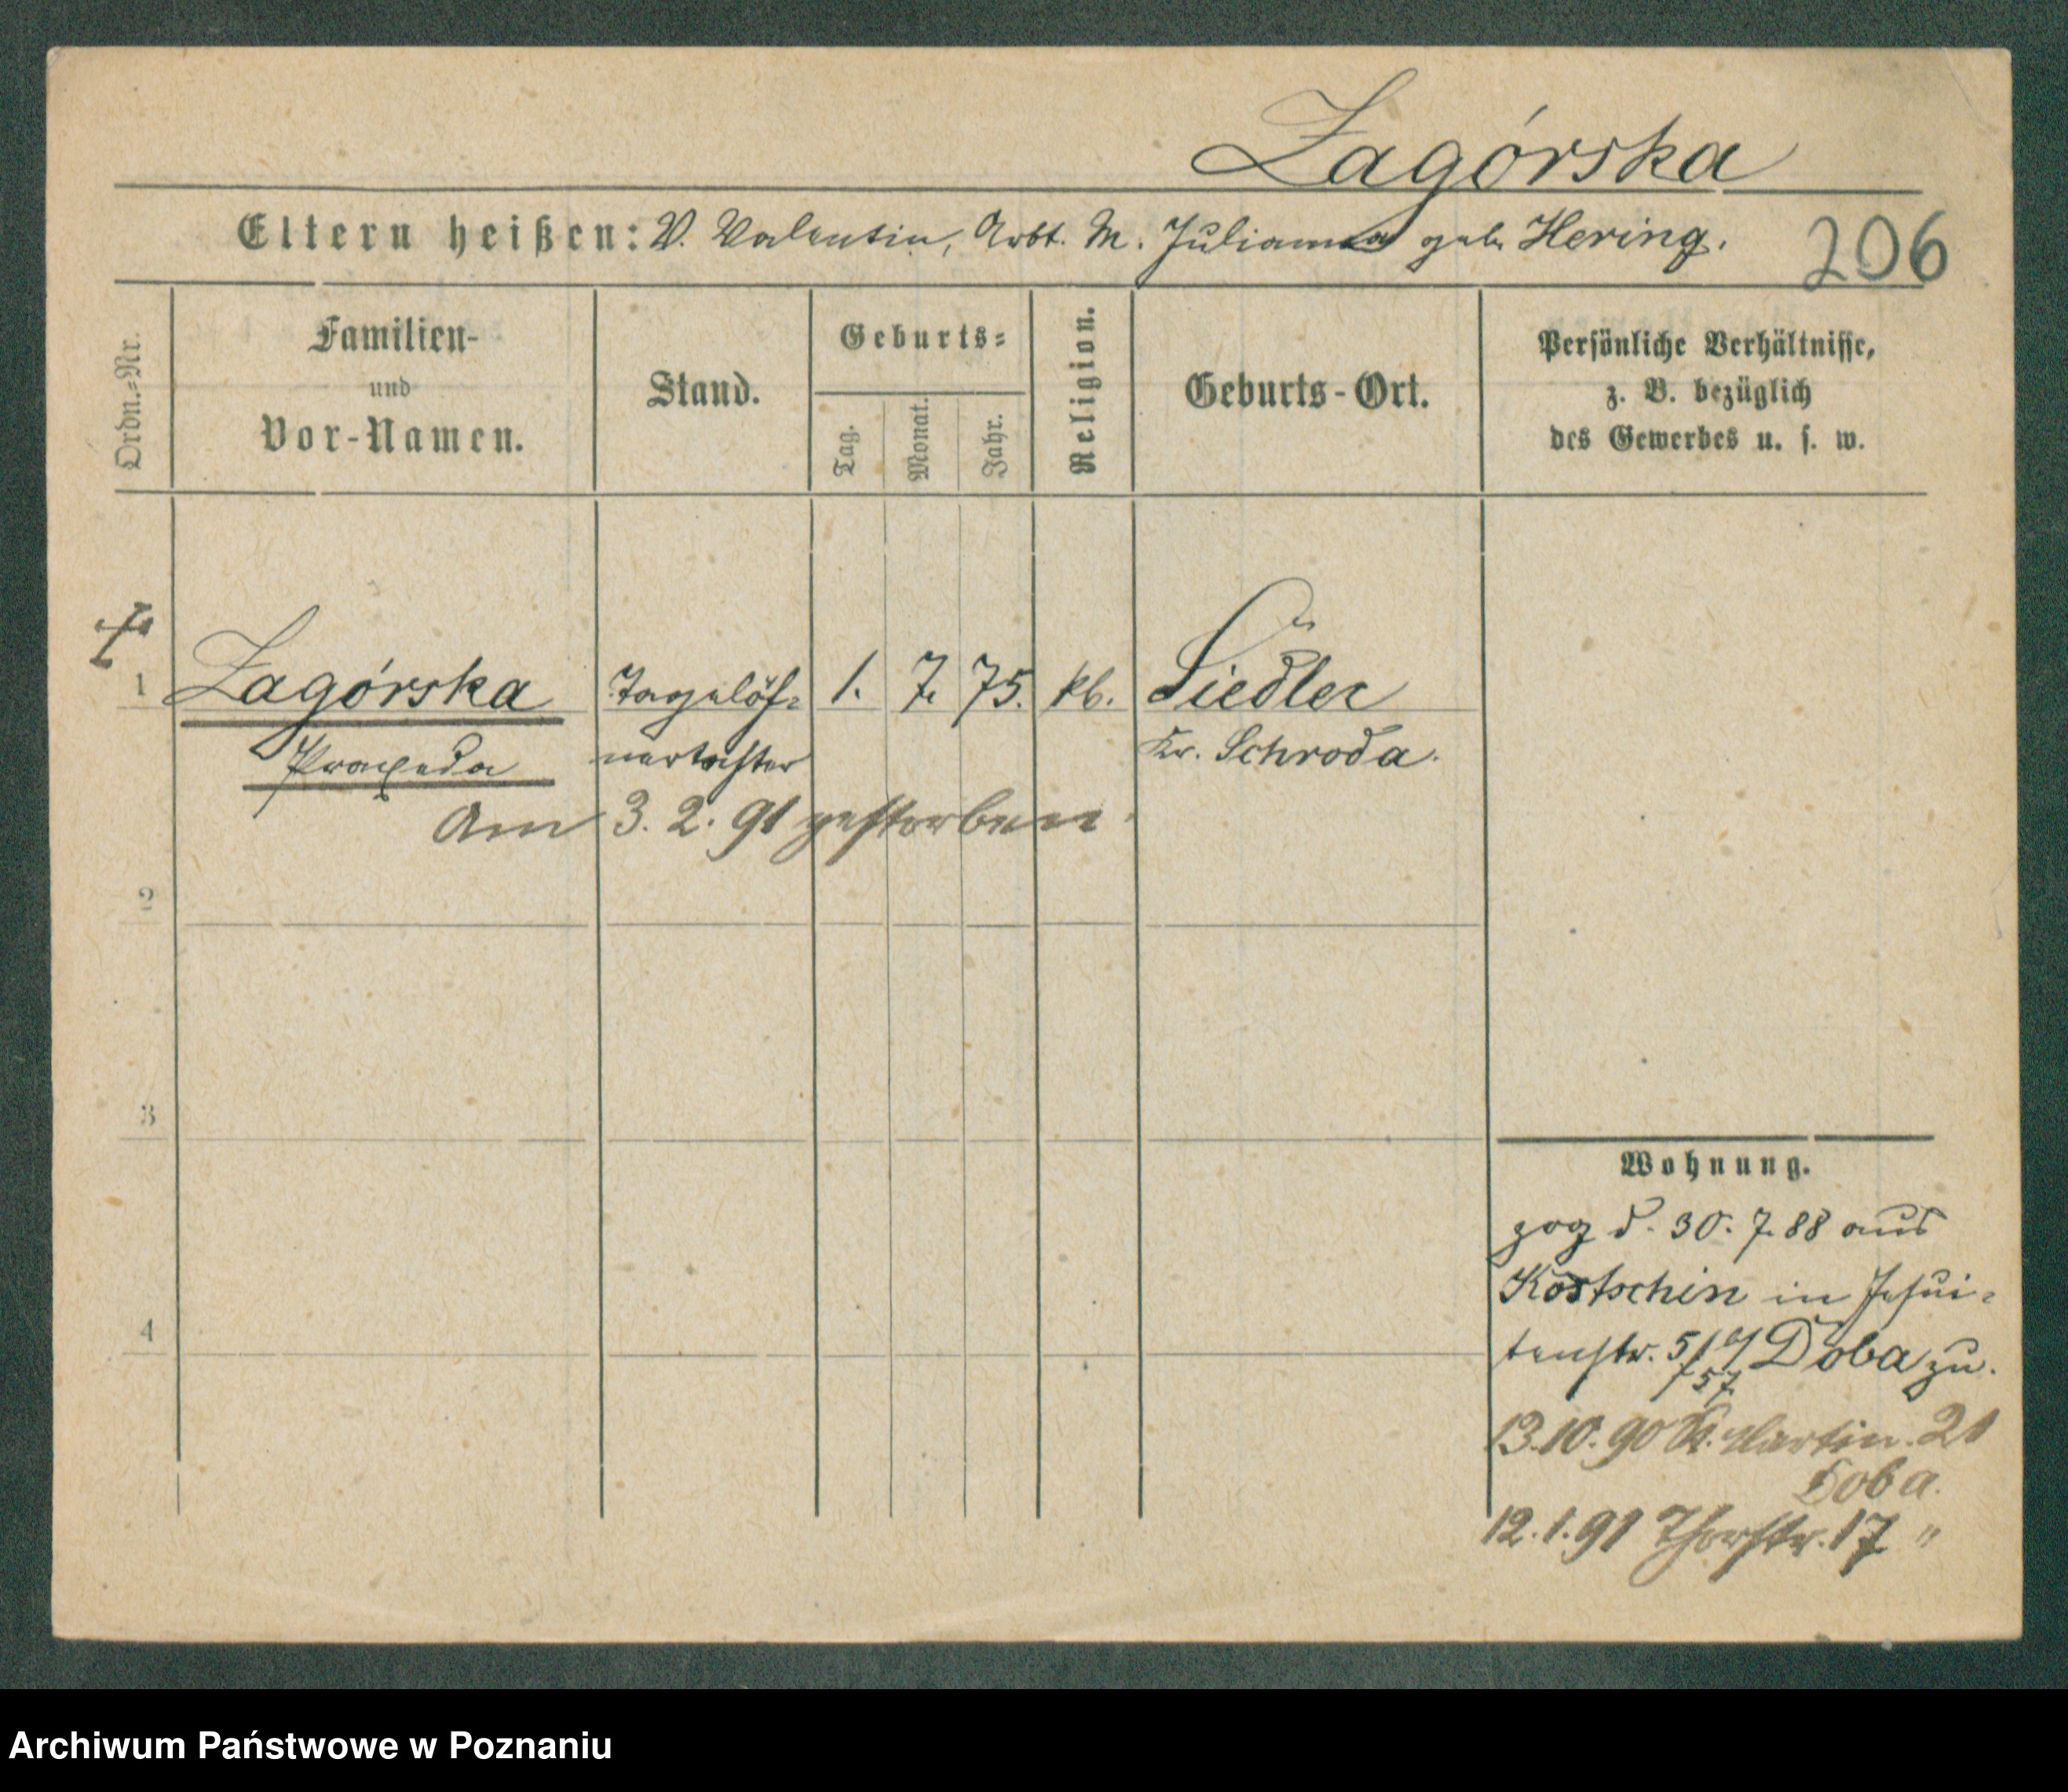 Zagórska
Eltern heißen: V. Valentin, Arbt. M. Julianna geb. Hering.
206
Ordn.-Nr.
Familien-
und
Vor-Namen.
Stand.
Geburts-
Tag.
Monat.
Jahr.
Religion.
Geburts-Ort.
Persönliche Verhältnisse,
z. B. bezüglich
des Gewerbes u. s. w.
1 Zagórska Tagelöh- 1. 7. 75. kth. Siedlec
Praxeda nertochter Kr. Schroda.
Am 3. 2. 91 gestorben.
2
3
4
Wohnung.
zog d. 30. 7. 88 aus
Kostschin in Jesui-
tenstr. 5/ Doba zu.
57
13.10.90 St. Martin. 21
Doba.
12.1.91 Thorstr. 17 "
Archiwum Państwowe w Poznaniu